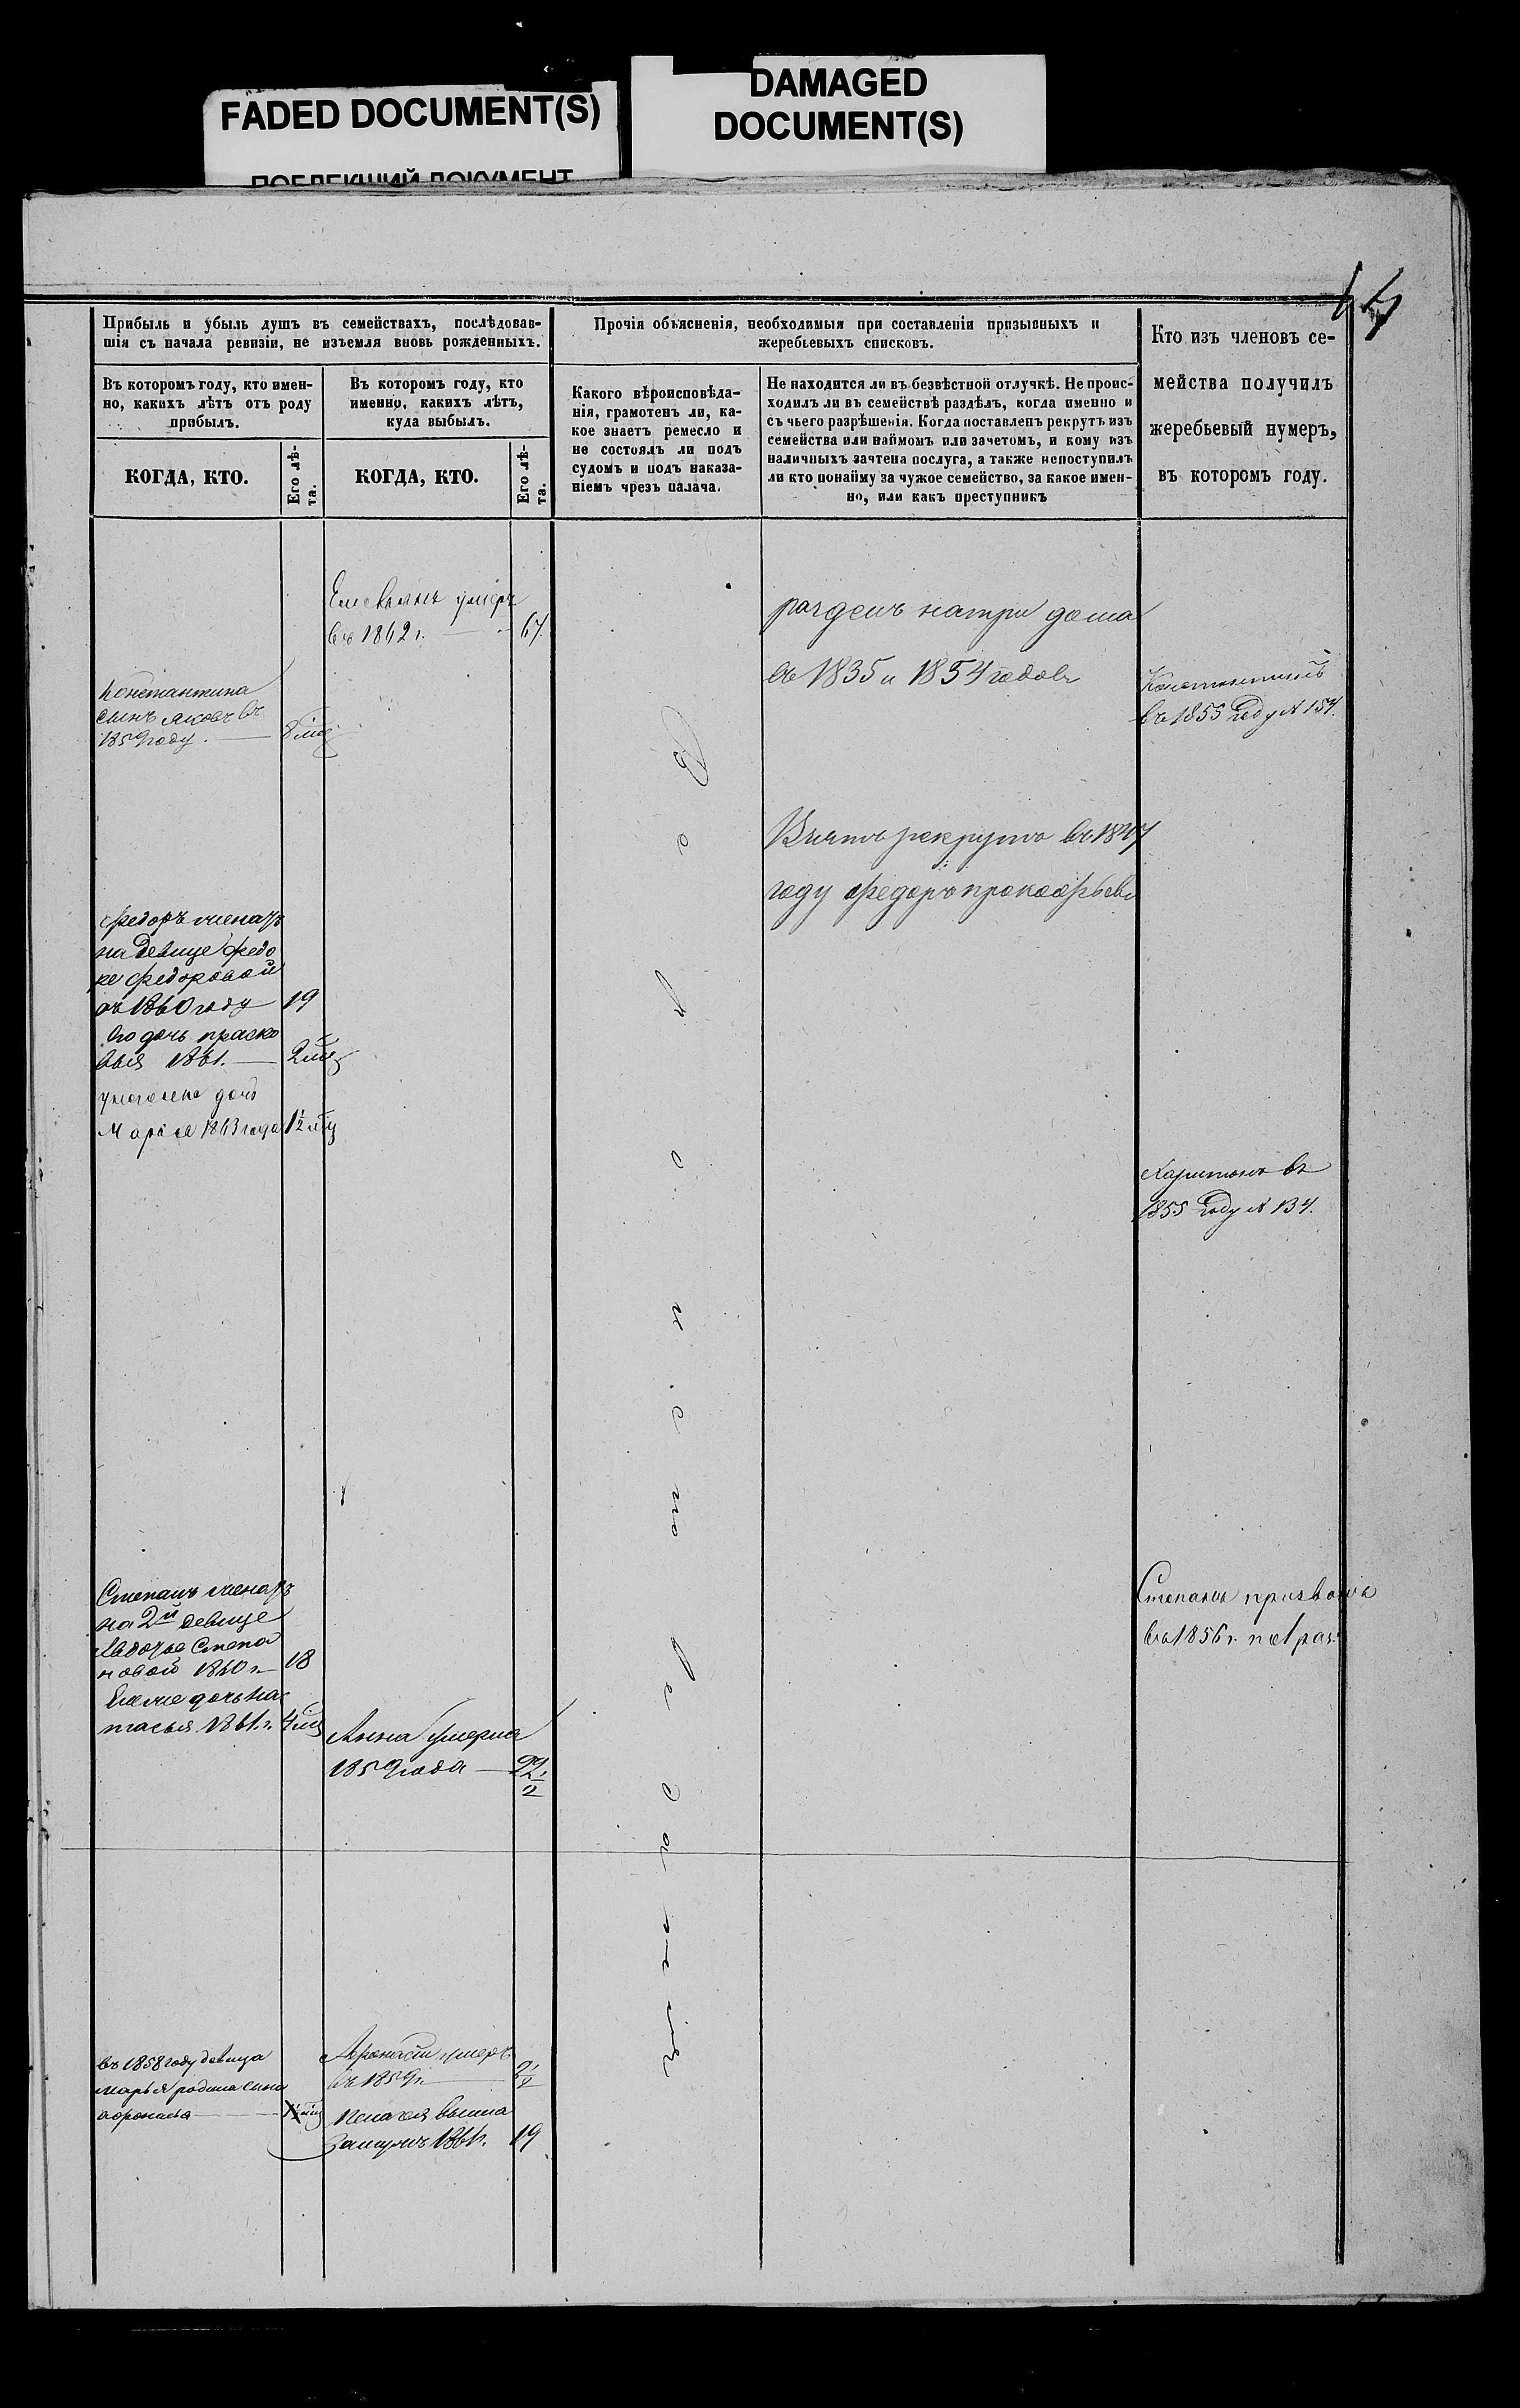 FADED DOCUMENT(S)
DAMAGED
DOCUMENT(S)
ПОБЛЕКШИЙ ДОКУМЕНТ
Прибыль и убыль душъ въ семействахъ, послѣдовав-
шія съ начала ревизіи, не изъемля вновь рожденныхъ.
Прочія объясненія, необходимыя при составленіи призывныхъ и
жеребьевыхъ списковъ.
Кто изъ членовъ се-
мейства получилъ
жеребьевый нумеръ,
въ которомъ году.
Въ которомъ году, кто имен-
но, какихъ лѣтъ отъ роду
прибылъ.
Въ которомъ году, кто
именно, какихъ лѣтъ,
куда выбылъ.
Какого вѣроисповѣда-
нія, грамотенъ ли, ка-
кое знаетъ ремесло и
не состоялъ ли подъ
судомъ и подъ наказа-
ніемъ чрезъ палача.
Не находится ли въ безвѣстной отлучкѣ. Не проис-
ходилъ ли въ семействѣ раздѣлъ, когда именно и
съ чьего разрѣшенія. Когда поставленъ рекрутъ изъ
семейства или наймомъ или зачетомъ, и кому изъ
наличныхъ зачтена послуга, а также непоступилъ
ли кто понайму за чужое семейство, за какое имен-
но, или какъ преступникъ
КОГДА, КТО.
Его лѣ-
та.
КОГДА, КТО.
Его лѣ-
та.
Емельянъ умеръ
въ 1862 г. 67
разделъ натри дома
въ 1835 и 1854 годовъ
Константина
сынъ Яковъ въ
1859 году
Константинъ
въ 1855 году № 154.
Взятъ рекрута въ 1847
году федоръ прокофьевъ
федоръ женатъ
на девице федо
ре федоровой
въ 1860 году 19
его дочь праско
вья 1861. 2 мц
дочь
Марія 1863 года 1½ мц
Харитонъ въ
1855 году № 134.
Православнаго
Степанъ женатъ
на 2й девице
Авдотье Степа
новой 1860 г. 18
дочь На
тасья 1861 г. 4 мц
Степанъ призванъ
въ 1856 г.
Анна умерла
1859 года 22½
въ 1858 году девица
марья родила сына
афонасья
Афонасій умеръ
въ 1859 г.
пелагея вышла
замужъ 1861 г. 19